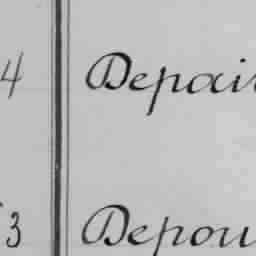 4 Depair
3 Depou